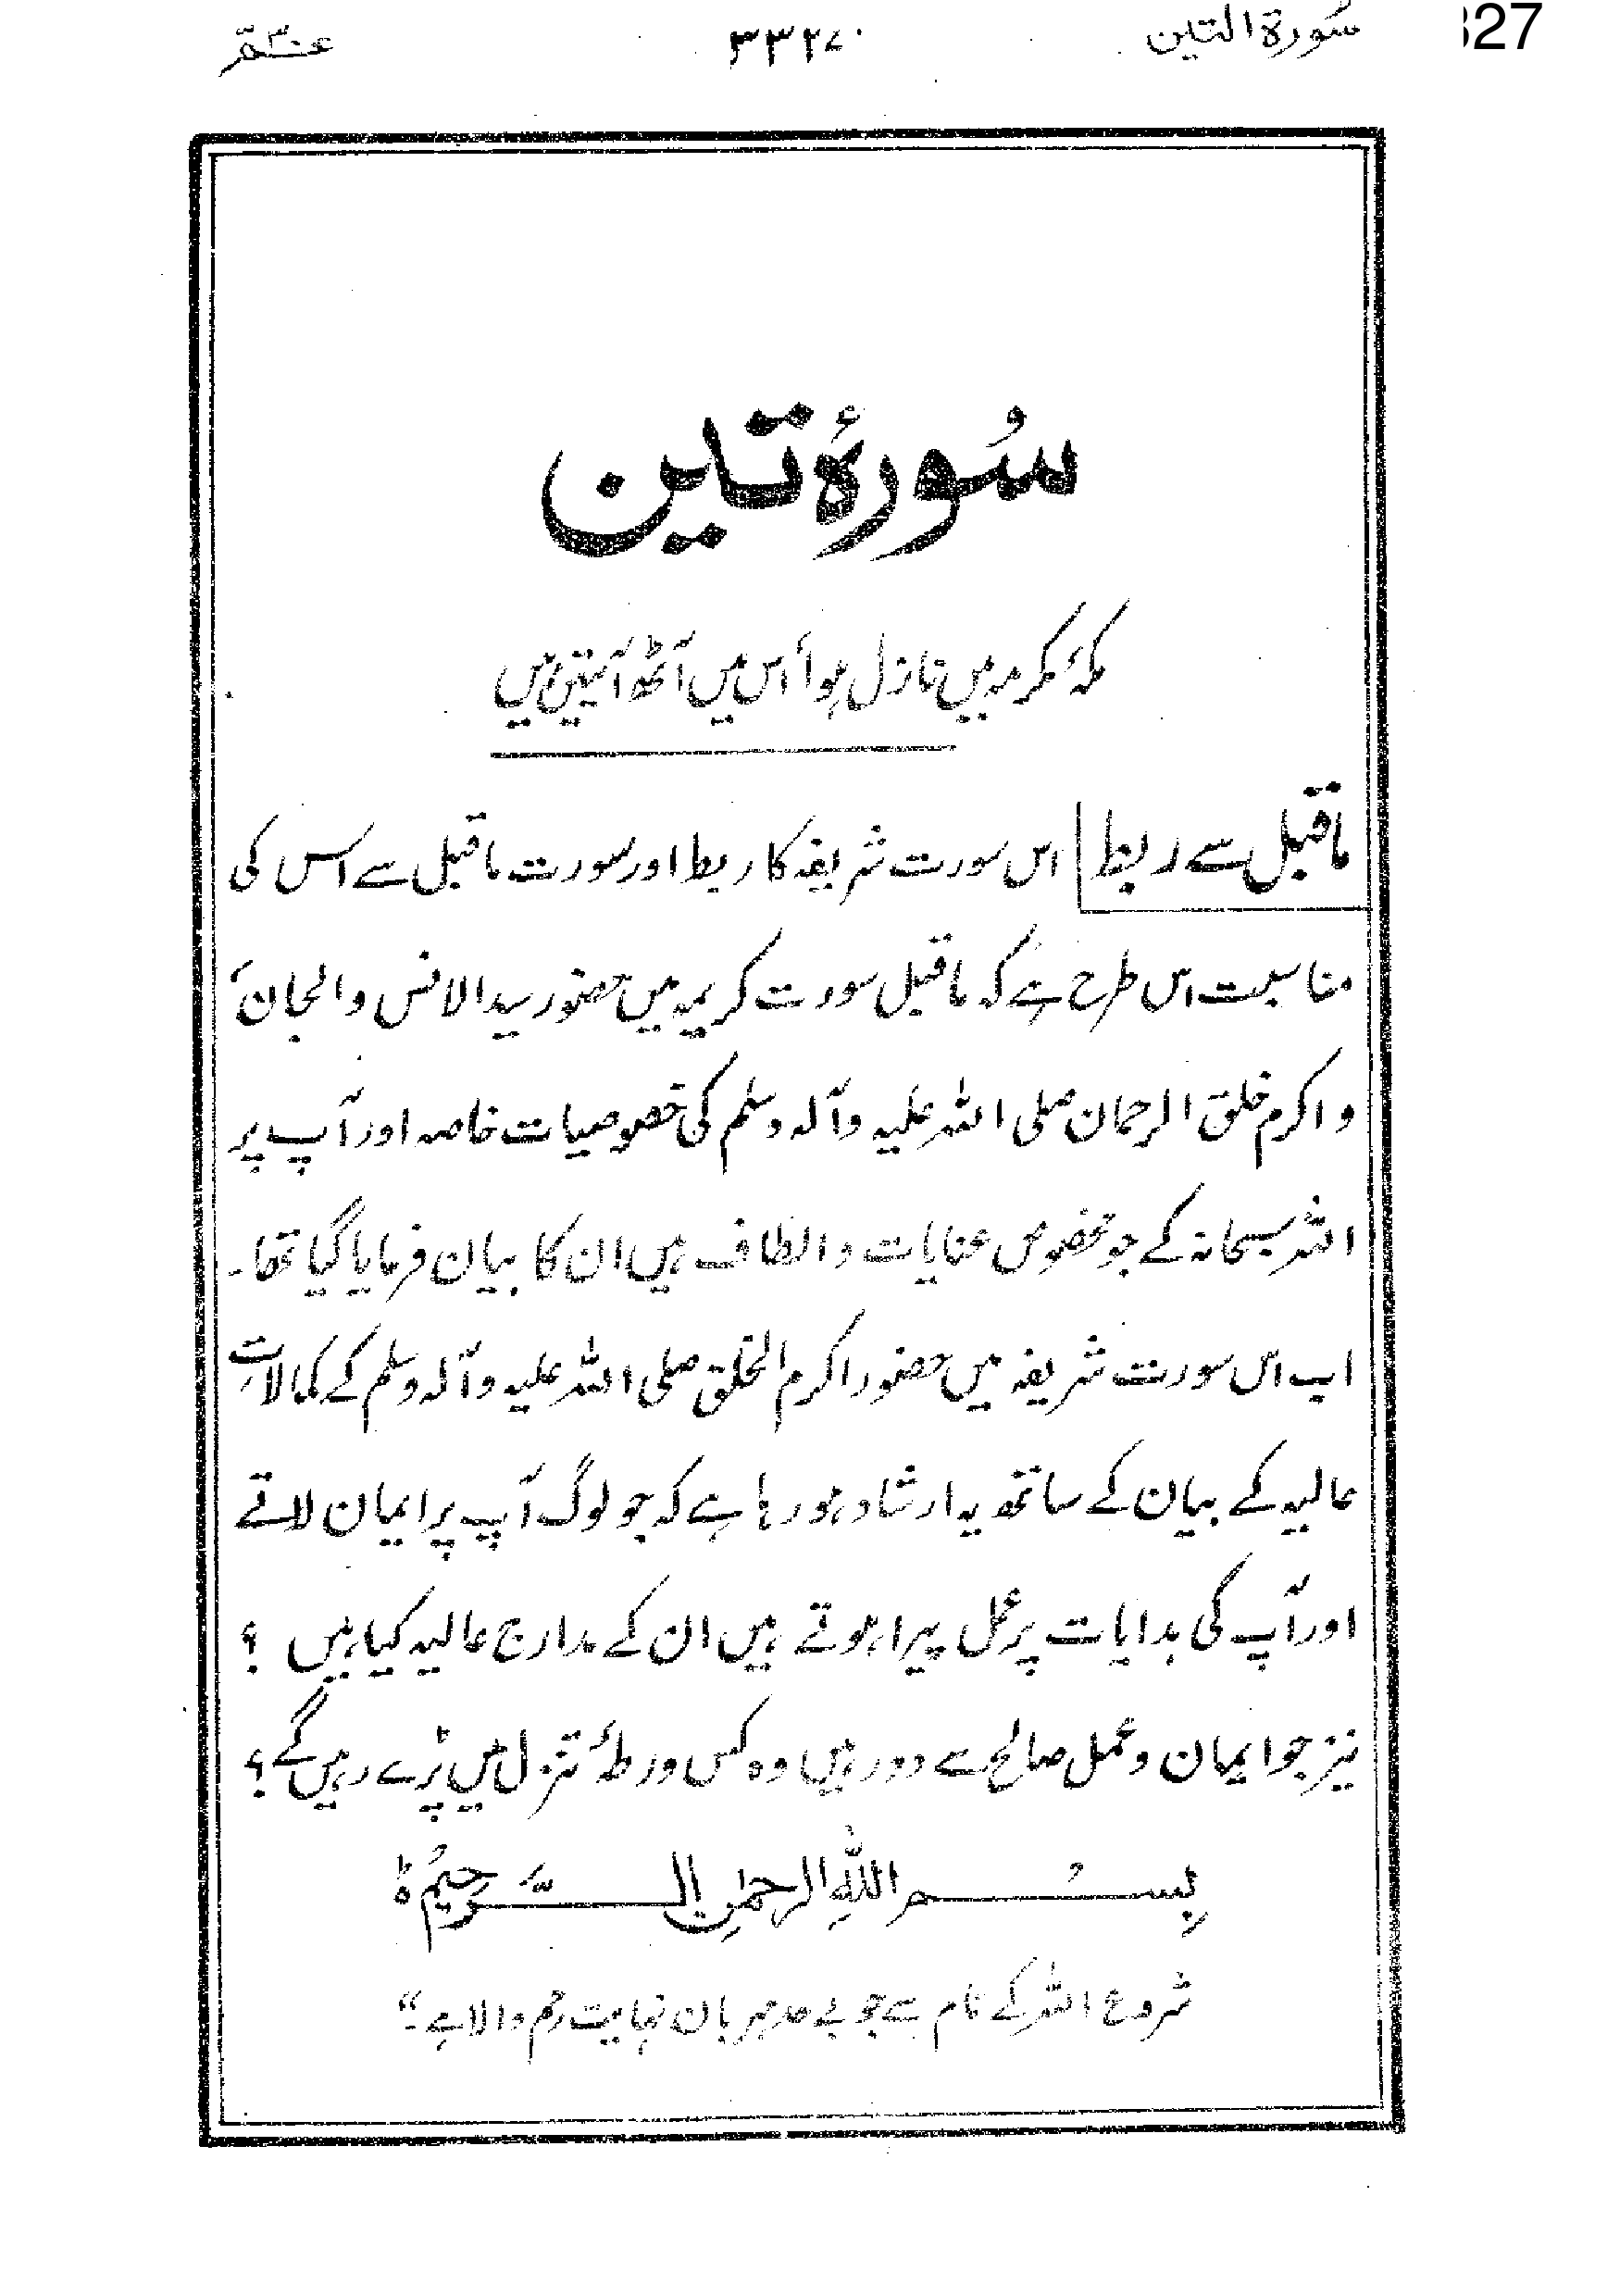 سُورۃ التین ۳۳۲۷ عمّ ۳۰ 327
سُورۂ تین
مکۂ مکرمہ میں نازل ہوا اس میں آٹھ آیتیں ہیں
ماقبل سے ربط اس سورت شریفہ کا ربط اور سورت ماقبل سے اس کی
مناسبت اس طرح ہے کہ ماقبل سورت کریمہ میں حضور سید الانس والجان،
واکرم خلق الرحمان صلی اللہ علیہ وآلہ وسلم کی خصوصیات خاصہ اور آپ پر
اللہ سبحانہ کے جو مخصوص عنایات والطاف ہیں ان کا بیان فرمایا گیا تھا۔
اب اس سورت شریفہ میں حضور اکرم الخلق صلی اللہ علیہ وآلہ وسلم کے کمالاتِ
عالیہ کے بیان کے ساتھ یہ ارشاد ہو رہا ہے کہ جو لوگ آپ پر ایمان لاتے
اور آپ کی ہدایات پر عمل پیرا ہوتے ہیں ان کے مدارج عالیہ کیا ہیں ؟
نیز جو ایمان وعمل صالح سے دور ہیں وہ کس ورطۂ تنزل میں پڑے رہیں گے؟
بِسْمِ اللّٰهِ الرحمٰنِ الرَّحِیْمِ ط
شروع اللہ کے نام سے جو بے حد مہربان نہایت رحم والا ہے۔“